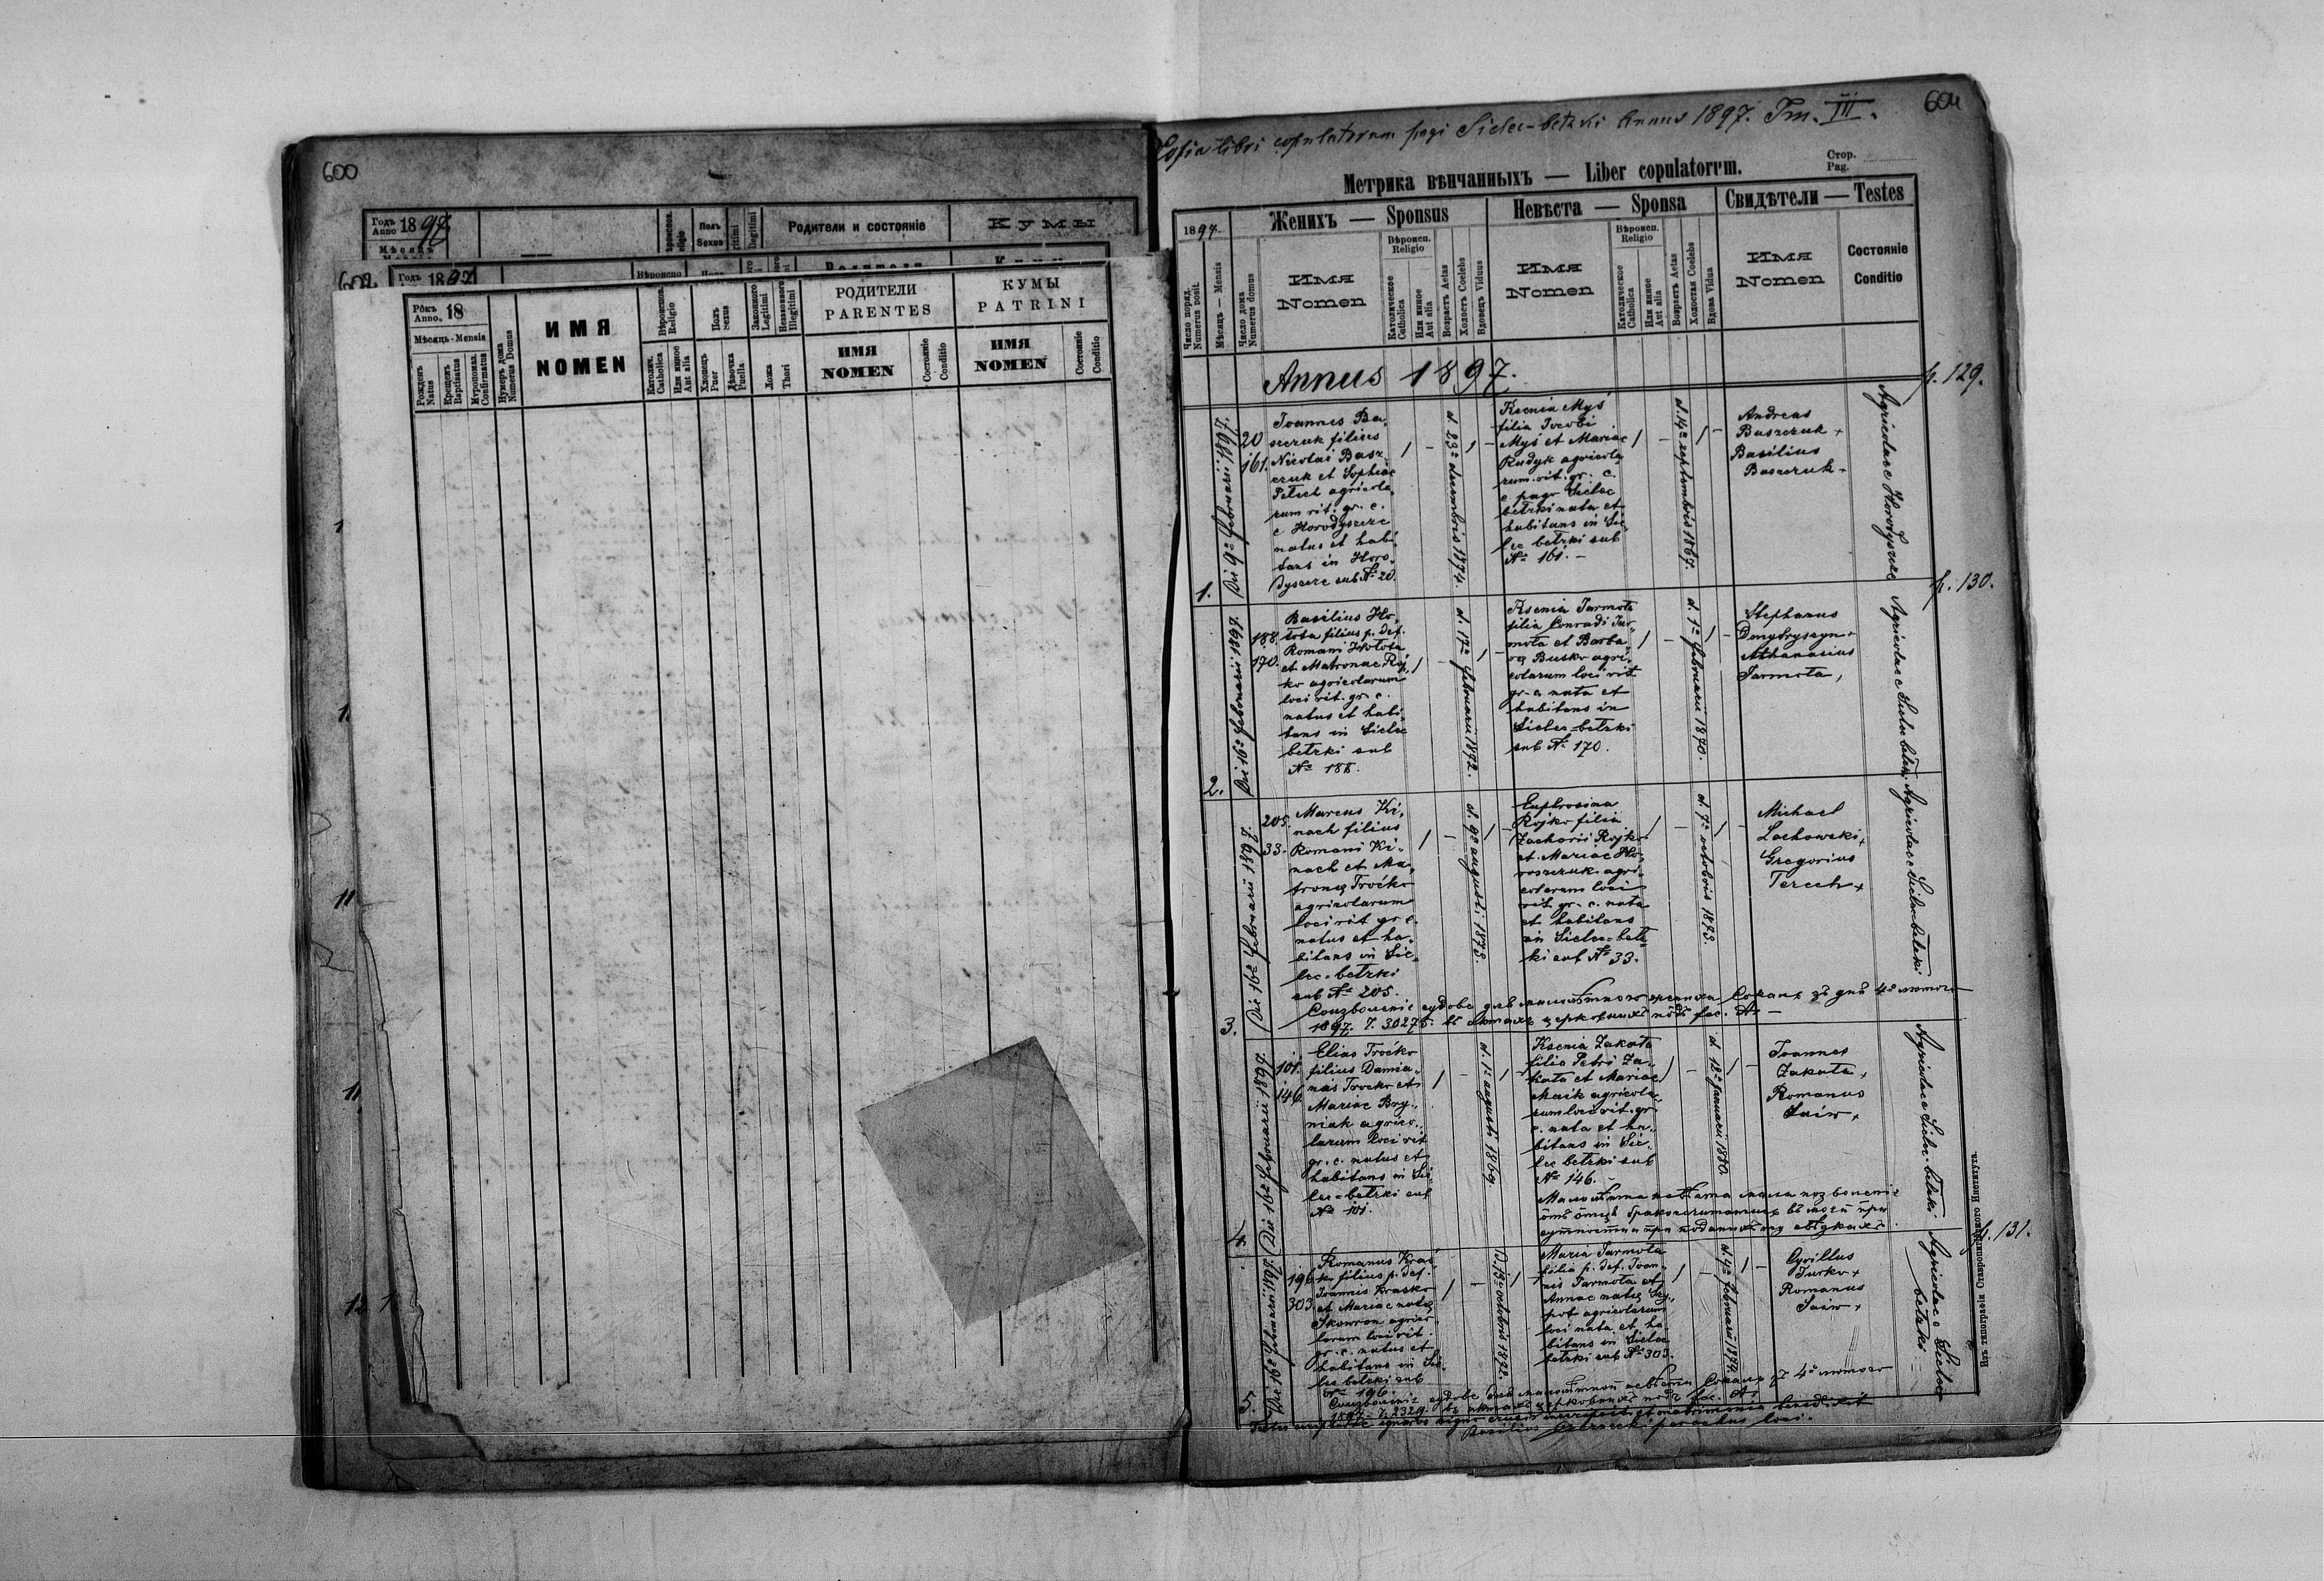 600
Годъ Anno 1897
Мѣсяць
Полъ Sexus
Родители и состояніе
Кумы
602
Годъ 1897
Рôкъ Anno. 18
Мѣсяць - Mensis
Рожденъ Natus
Крещенъ Baptisatus
Мѵропомаз. Confirmatus
Нумеръ дома Numerus Domus
ИМЯ
NOMEN
Вѣроиспов. Religio
Католич. Catholica
Или инное Aut alia
Полъ Sexus
Хлопець Puer
Дѣвочка Puella
Законного Legitimi
Незаконного Illegitimi
Ложа Thori
РОДИТЕЛИ
PARENTES
ИМЯ
NOMEN
Состояніе Conditio
КУМЫ
PATRINI
ИМЯ
NOMEN
Состояніе Conditio
604
Copia libri copulatorum pagi Sielec-bełzki Annus 1897. Tm. III.
Метрика вѣнчанныхъ — Liber copulatorum.
Стор.
Pag.
1897
Женихъ — Sponsus
Невѣста — Sponsa
Свидѣтели — Testes
Число поряд. Numerus posit.
Мѣсяць — Mensis
Число дома Numerus domus
Имя
Nomen
Вѣроисп. Religio
Католическое Catholica
Или инное Aut alia
Возрастъ Aetas
Холостъ Coelebs
Вдовецъ Viduus
Имя
Nomen
Вѣроисп. Religio
Католическое Catholica
Или инное Aut alia
Возрастъ Aetas
Холостая Coelebs
Вдова Vidua
Имя
Nomen
Состояніе
Conditio
Annus 1897.
p. 129.
1.
Die 9ª Februarii 1897.
20
161.
Joannes Ba,
szczuk filius
Nicolai Basz,
czuk et Sophiae
Petech agricola,
rum rit. gr. c.
e Horodyszcze
natus et habi,
tans in Horo,
dyszcze sub № 20.
d. 23ª decembris 1874.
Ksenia Myś
filia Jacobi
Myś et Mariae
Rudyk agricola,
rum rit. gr. c.
e pago Sielec
bełzki nata et
habitans in Sie,
lec bełzki sub
№ 161. -
d. 14ª septembris 1867.
Andreas
Baszczuk +
Basilius
Baszczuk +
Agricolae e Horodyszcze
p. 130.
2.
Die 16ª Februarii 1897.
188.
170.
Basilius Ho,
łota filius p. def.
Romani Hołota
et Matronae Roj,
ko agricolarum
loci rit. gr. c.
natus et habi,
tans in Sielec
bełzki sub
№ 188.
d. 17ª Februarii 1872.
Ksenia Jarmoła
filia Conradi Jar,
moła et Barba,
rę Busko agri,
colarum loci rit
gr. c. nata et
habitans in
Sielec-bełzki
sub № 170.
d. 1ª Februarii 1870.
Stephanus
Dmytryszyn +
Athanasius
Jarmoła,
Agricolae e Sielec bełzki
3.
Die 16ª Februarii 1897.
205.
33.
Marcus Ki,
nach filius
Romani Ki,
nach et Ma,
tronę Troćko
agricolarum
loci rit gr. c.
natus et ha,
bitans in Sie,
lec-bełzki
sub № 205.
d. 9ª augusti 1873.
Euphrosina
Rojko filia
Zacharii Rojko
et Mariae Ho,
roszczuk agri,
colarum loci
rit gr. c. nata
et habitans
in Sielec-bełz,
ki sub № 33.
d. 7ª octobris 1873.
Michael
Lachowski +
Gregorius
Terech +
Agricolae e Sielec-bełzki
4.
Die 16ª Februarii 1897.
101.
146
Elias Troćko
filius Damia,
nis Troćko et
Mariae Bry,
niak agrico,
larum loci rit
gr. c. natus et
habitans in Sie,
lec-bełzki sub
№ 101.
d. 1ª augusti 1869.
Ksenia Zakała
filia Petri Za,
kała et Mariae
Maik agricola,
rum loci rit. gr.
c. nata et ha,
bitans in Sie,
lec bełzki sub
№ 146. -
d. 12ª januarii 1880.
Joannes
Zakała +
Romanus
Saiw +
Agricolae e Sielec-bełzki
p. 131.
5.
Die 16ª Februarii 1897.
196
303
Romanus Kraś,
ko filius p. def.
Joannis Krasko
et Mariae natę
Skowron agrico
larum loci rit.
gr. c. natus et
habitans in Sie,
lec bełzki sub
№ 196.
D. 19ª octobris 1872.
Maria Jarmoła
filia p. def. Joan,
nis Jarmoła et
Annae natę
agricolarum
loci nata et ha,
bitans in Sielec
bełzki sub № 303.
d. 4ª februarii 1877.
Cyrillus
Jurko +
Romanus
Saiw +
Agricolae e Sielec
bełzki
Изъ типографіи Ставропигійского Института.